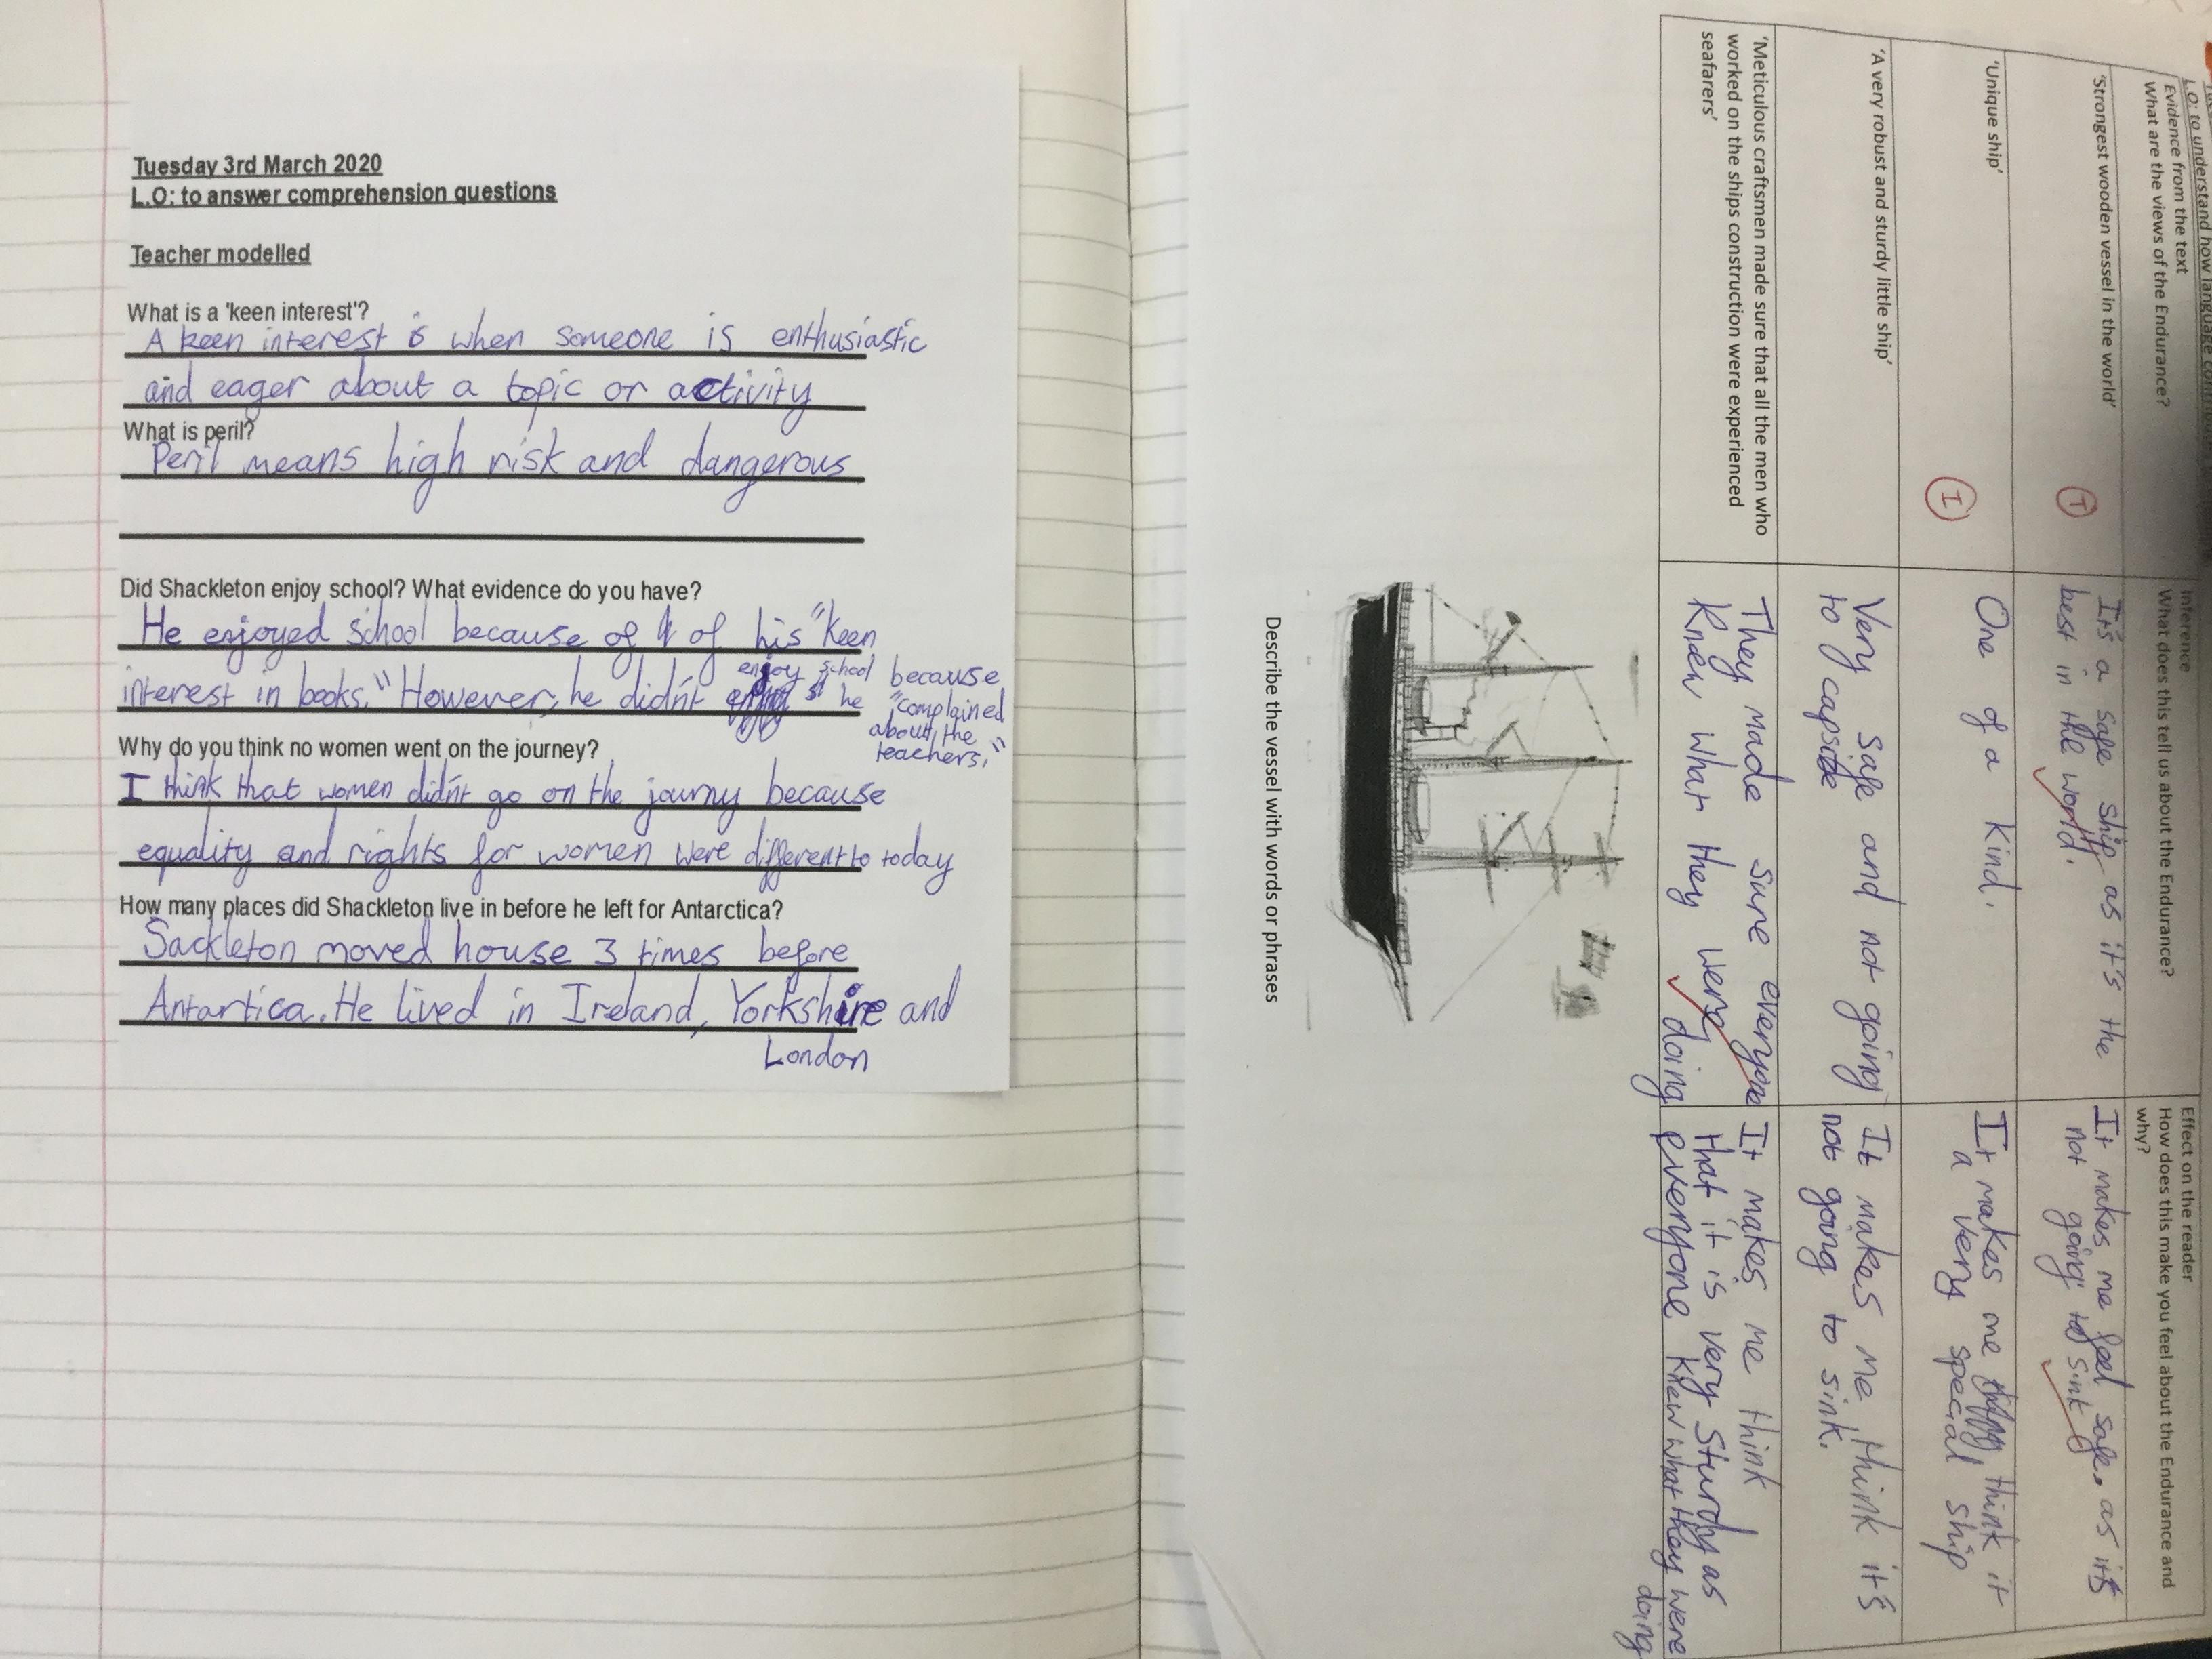 Tuesday 3rd March 2020
L.O: to answer comprehension questions
Teacher modelled
What is a 'keen interest'?
A keen interest is when someone is enthusiastic
and eager about a topic or activity
What is peril?
Peril means high risk and dangerous
Did Shackleton enjoy school? What evidence do you have?
He enjoyed school because of of his "keen
interest in books." However, he didn't enjoy school because
he "complained
about the
teachers,"
Why do you think no women went on the journey?
I think that women didn't go on the journy because
equality and rights for women were different to today
How many places did Shackleton live in before he left for Antarctica?
Sackleton moved house 3 times before
Antartica. He lived in Ireland, Yorkshire and
London
L.O: to understand how language
Evidence from the text
What are the views of the Endurance?
Inference
What does this tell us about the Endurance?
Effect on the reader
How does this make you feel about the Endurance and
why?
'Strongest wooden vessel in the world'
I
It's a safe ship as it's the
best in the world.
It makes me feel safe. as it's
not going to sink
'Unique ship'
I
One of a kind.
It makes me think it
a very special ship
'A very robust and sturdy little ship'
Very safe and not going
to capsize
It makes me think it's
not going to sink.
'Meticulous craftsmen made sure that all the men who
worked on the ships construction were experienced
seafarers'
They made sure everyone
knew what they were
doing
It makes me think
that it is very sturdy as
everyone knew what they were
doing
Describe the vessel with words or phrases